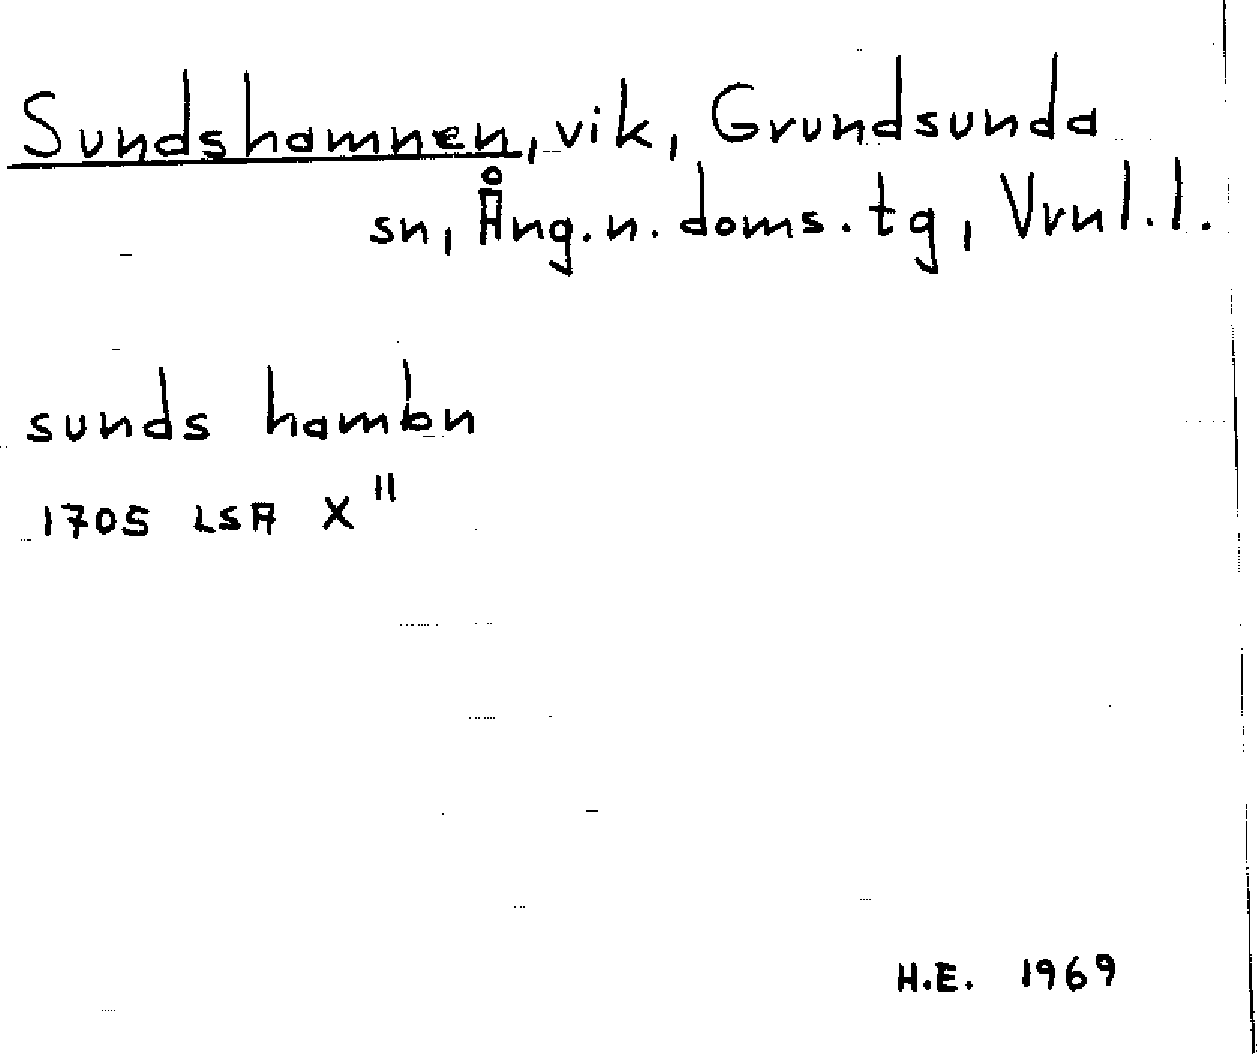 Sundshamnen, vik, Grundsunda
sn, Ång. n. doms. tg, Vrnl. l.
sunds hambn
1705 LSA X"
H.E. 1969